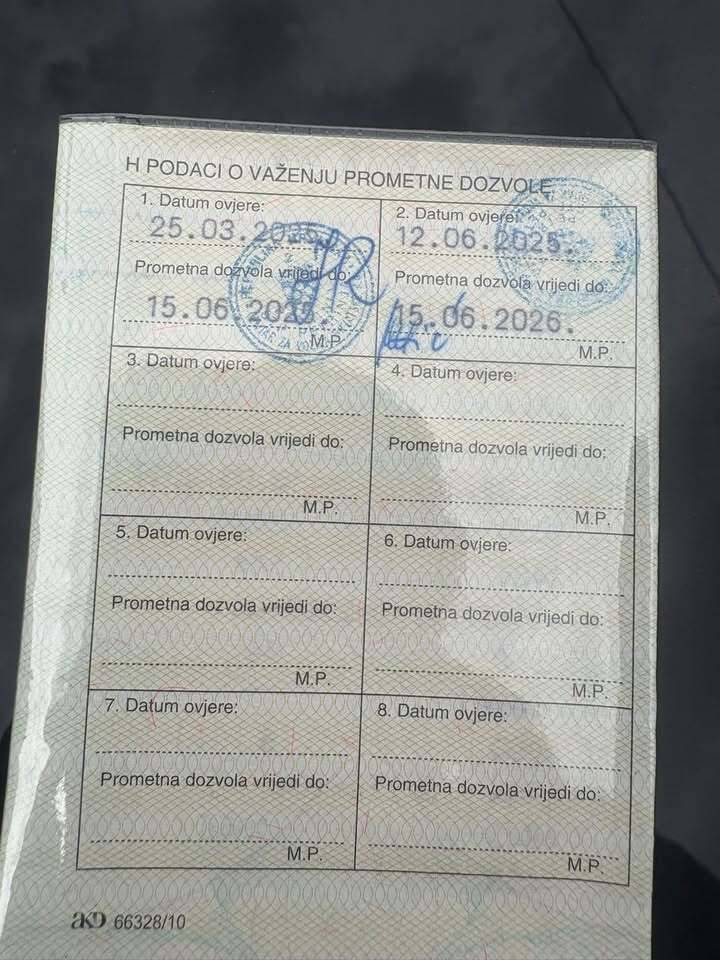 H PODACI O VAŽENJU PROMETNE DOZVOLE
1. Datum ovjere:
25.03.2025.
Prometna dozvola vrijedi do:
15.06.2025.
M.P.
2. Datum ovjere:
12.06.2025.
Prometna dozvola vrijedi do:
15.06.2026.
M.P.
3. Datum ovjere:
Prometna dozvola vrijedi do:
M.P.
4. Datum ovjere:
Prometna dozvola vrijedi do:
M.P.
5. Datum ovjere:
Prometna dozvola vrijedi do:
M.P.
6. Datum ovjere:
Prometna dozvola vrijedi do:
M.P.
7. Datum ovjere:
Prometna dozvola vrijedi do:
M.P.
8. Datum ovjere:
Prometna dozvola vrijedi do:
M.P.
AKD 66328/10